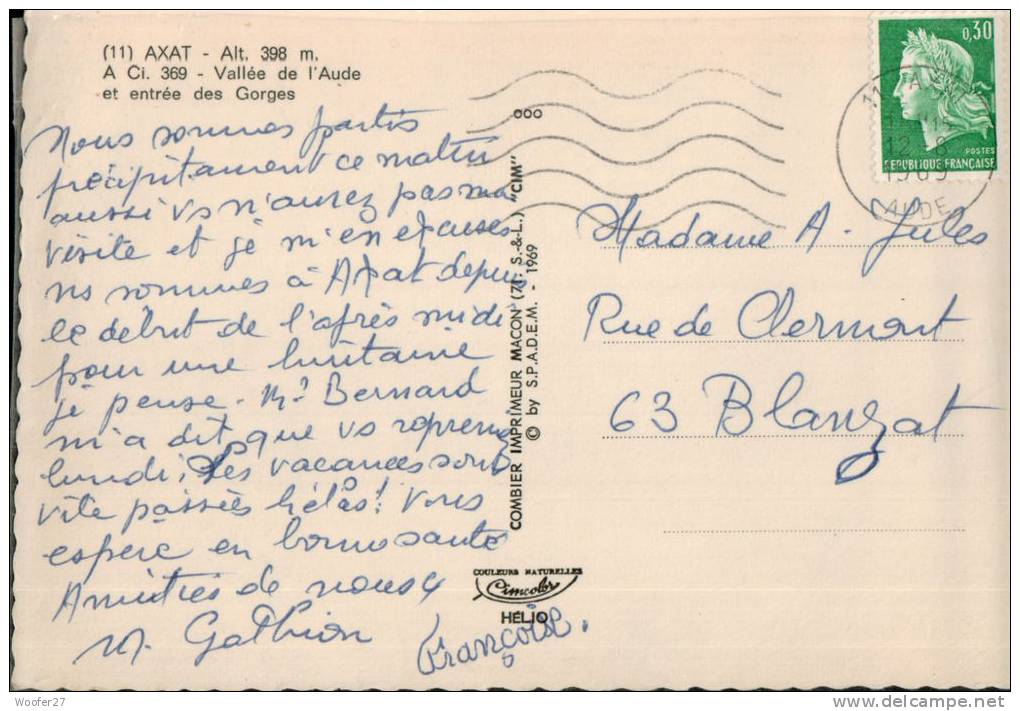 (11) AXAT - Alt. 398 m.
A Ci. 369 - Vallée de l'Aude
et entrée des Gorges
Nous sommes partis
précipitament ce matin
aussi vs n'aurez pas ma
visite et je m'en excuse
ns sommes à Axat depuis
le début de l'après midi
pour une huitaine
je pense. Mr Bernard
m'a dit que vs reprenez
lundi, Les vacances sont
vite passées hélas! Vous
espère en bonne santé
Amitiés de nous 4
M. Gathion
Françoise.
ooo
COMBIER IMPRIMEUR MACON (71. S.-&-L.) "CIM"
© by S.P.A.D.E.M. - 1969
COULEURS NATURELLES
Cimcolor
HÉLIO
0,30
POSTES
REPUBLIQUE FRANÇAISE
11 AXAT
12 - 8
1969
AUDE
Madame A. Jules
Rue de Clermont
63 Blanzat
Woofer27
www.delcampe.net